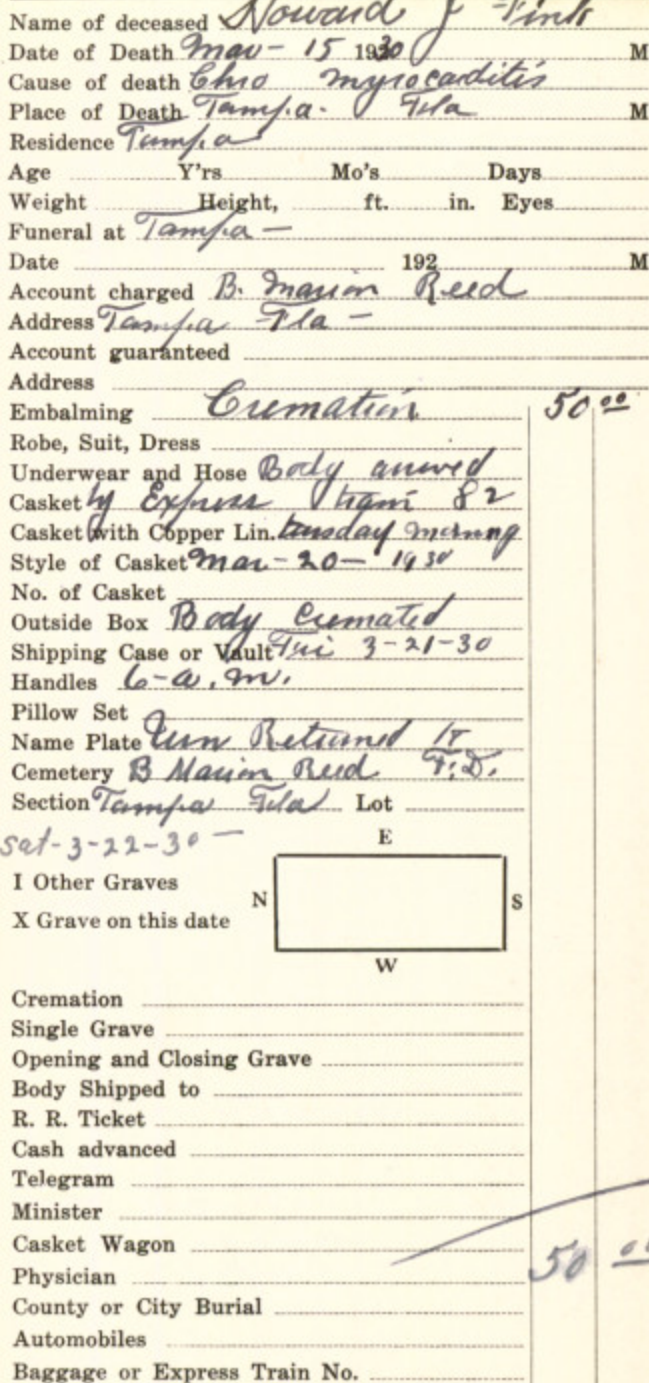 Name of deceased Howard J Fink
Date of Death Mar - 15 1930 M
Cause of death Chro myrocarditis
Place of Death Tampa. Fla M
Residence Tampa
Age Y'rs Mo's Days
Weight Height, ft. in. Eyes
Funeral at Tampa -
Date 192 M
Account charged B. Marion Reed
Address Tampa Fla -
Account guaranteed
Address
Embalming Cremation 50 00
Robe, Suit, Dress
Underwear and Hose Body arrived
Casket by Express train 82
Casket with Copper Lin. tursday morning
Style of Casket Mar - 20 - 1930
No. of Casket
Outside Box Body Cremated
Shipping Case or Vault Fri 3-21-30
Handles 6 - a.m.
Pillow Set
Name Plate Urn Returned to
Cemetery B Marion Reed F.D.
Section Tampa Fla Lot
Sat - 3-22-30 -
E
I Other Graves
N S
X Grave on this date
W
Cremation
Single Grave
Opening and Closing Grave
Body Shipped to
R. R. Ticket
Cash advanced
Telegram
Minister
Casket Wagon
50 00
Physician
County or City Burial
Automobiles
Baggage or Express Train No.